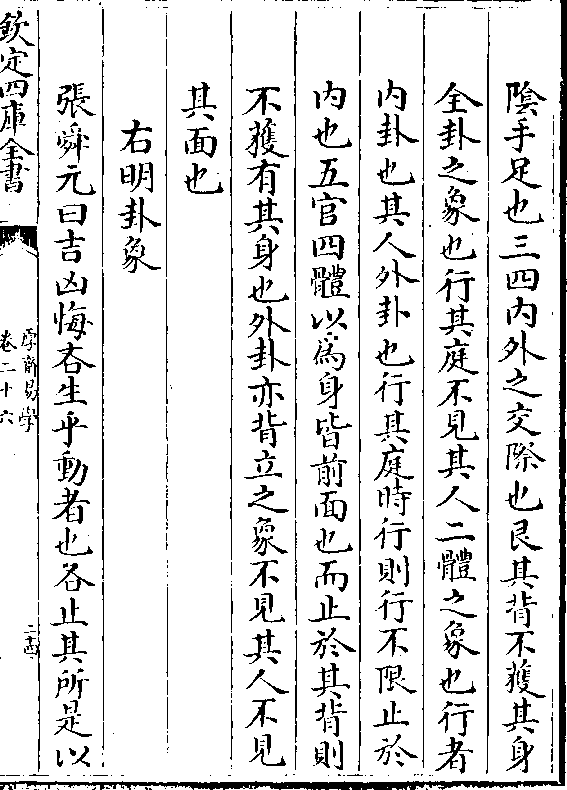 陰手足也三四内外之交際也艮其背不獲其身
全卦之象也行其庭不見其人二體之象也行者
内卦也其人外卦也行其庭時行則行不限止於
内也五官四體以為身皆前面也而止於其背則
不獲有其身也外卦亦背立之象不見其人不見
其面也
右明卦象
張舜元曰吉凶悔吝生乎動者也各止其所是以
欽定四庫全書
厚齋易學
卷二十六
二十四